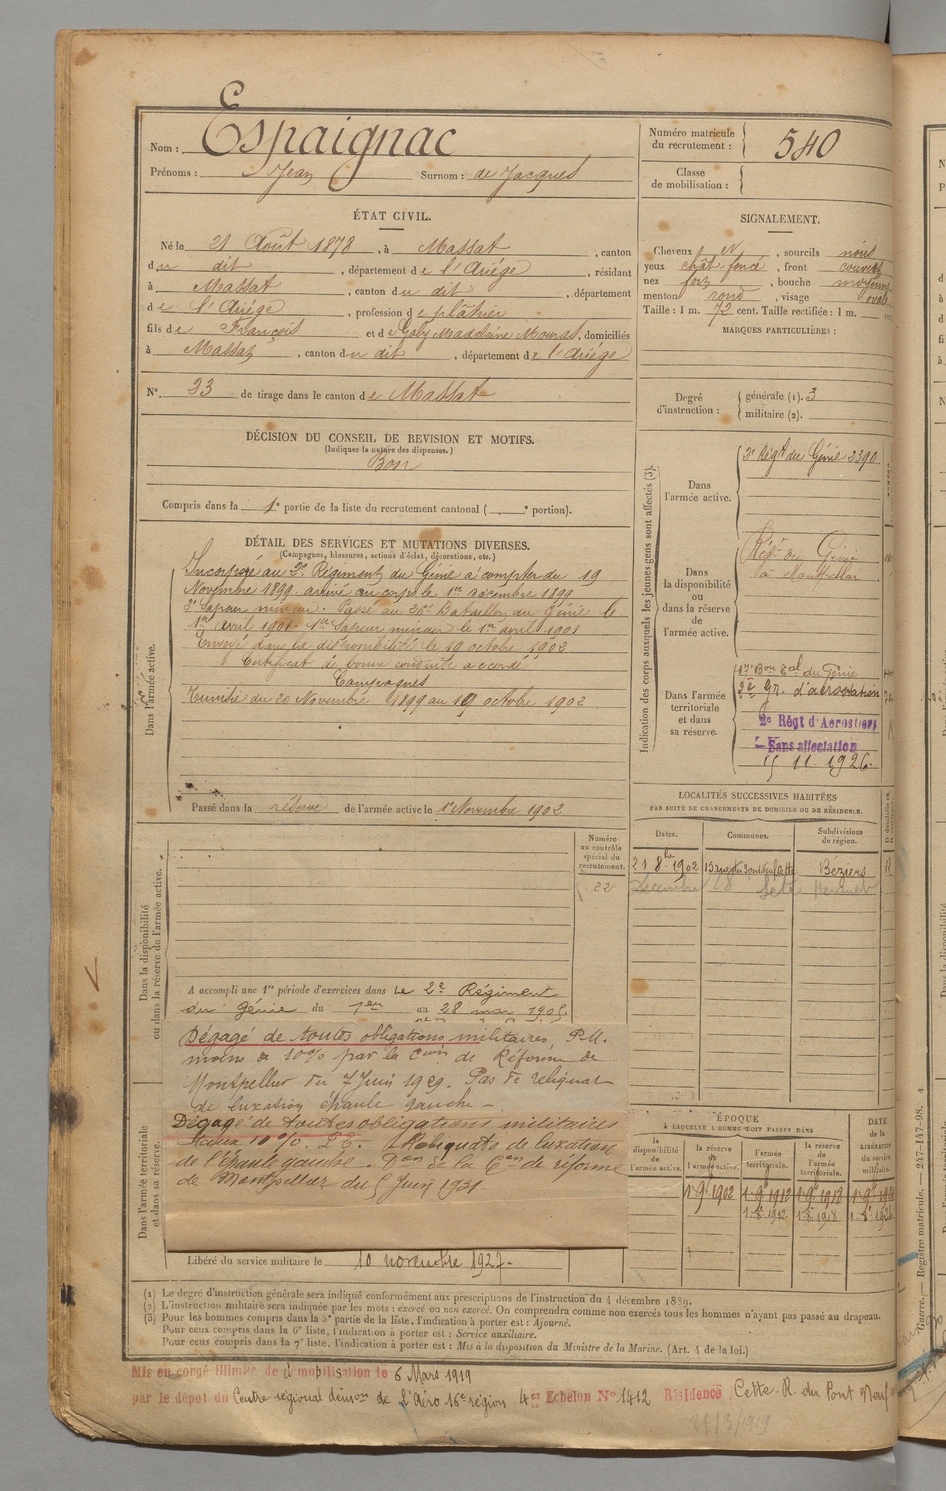 Nom : Espaignac
Prénoms : Jean Surnom : de Jacques
Numéro matricule du recrutement : 540
Classe de mobilisation :
ÉTAT CIVIL.
Né le 21 Août 1878, à Massat, canton
du dit, département de l'Ariège, résidant
à Massat, canton du dit, département
de l'Ariège, profession de plâtrier
fils de François et de Galy Madelaine, domiciliés
à Massat, canton du dit, département de l'Ariège
N° 23 de tirage dans le canton de Massat
SIGNALEMENT.
Cheveux et, sourcils noirs
yeux chât. foncé, front couvert
nez fort, bouche moyenne
menton rond, visage ovale
Taille : 1 m. 72 cent. Taille rectifiée : 1 m.
MARQUES PARTICULIÈRES :
Degré d'instruction :
générale (1). 3
militaire (2).
DÉCISION DU CONSEIL DE REVISION ET MOTIFS.
(Indiquer la nature des dispenses.)
Bon
Compris dans la 1e partie de la liste du recrutement cantonal ( e portion).
DÉTAIL DES SERVICES ET MUTATIONS DIVERSES.
(Campagnes, blessures, actions d'éclat, décorations, etc.)
Dans l'armée active.
Incorporé au 2e Régiment du Génie à compter du 19
Novembre 1899 arrivé au corps le 1er décembre 1899
2e Sapeur mineur. Passé au 26e Bataillon du Génie le
1er avril 1901. 1er Sapeur mineur le 1er avril 1901
Envoyé dans la disponibilité le 19 octobre 1902
Certificat de bonne conduite accordé
Campagnes
Tunisie du 20 Novembre 1899 au 19 octobre 1902
Passé dans la réserve de l'armée active le 1er Novembre 1902
Indication des corps auxquels les jeunes gens sont affectés (3).
Dans l'armée active.
2e Régt du Génie 3390
Dans la disponibilité ou dans la réserve de l'armée active.
Régt du Génie
à Montpellier
Dans l'armée territoriale et dans sa réserve.
17e Bon du Génie
2e Gr. d'aérostation
2e Régt d'Aérostiers
Sans affectation
15 11 1926
LOCALITÉS SUCCESSIVES HABITÉES
PAR SUITE DE CHANGEMENTS DE DOMICILE OU DE RÉSIDENCE.
Dates. Communes. Subdivisions de région.
21 8bre 1902 Béziers
Sète
Dans la disponibilité ou dans la réserve de l'armée active.
Numéro au contrôle spécial du recrutement.
22
A accompli une 1re période d'exercices dans le 2e Régiment
du Génie du 1er au 28 mai 1905
Dégagé de toutes obligations militaires, P.M.
moins de 10% par la Com de Réforme de
Montpellier du 7 Juin 1929. Pas de reliquat
de luxation épaule gauche –
Dégagé de toutes obligations militaires
10 %. Reliquats de luxation
de l'épaule gauche. Don de la Con de réforme
de Montpellier du 5 Juin 1931.
Dans l'armée territoriale et dans sa réserve.
Libéré du service militaire le 10 novembre 1927.
ÉPOQUE
À LAQUELLE L'HOMME DOIT PASSER DANS
la disponibilité de l'armée active. la réserve de l'armée active. l'armée territoriale. la réserve de l'armée territoriale. DATE de la LIBÉRATION du service militaire.
1er 9bre 1902 1er 9bre 1912 1er 9bre 1918
1 8bre 1912 1 8bre 1918
(1) Le degré d'instruction générale sera indiqué conformément aux prescriptions de l'instruction du 4 décembre 1889.
(2) L'instruction militaire sera indiquée par les mots : exercé ou non exercé. On comprendra comme non exercés tous les hommes n'ayant pas passé au drapeau.
(3) Pour les hommes compris dans la 5e partie de la liste, l'indication à porter est : Ajourné.
Pour ceux compris dans la 6e liste, l'indication à porter est : Service auxiliaire.
Pour ceux compris dans la 7e liste, l'indication à porter est : Mis à la disposition du Ministre de la Marine. (Art. 4 de la loi.)
Mis en congé illimité de démobilisation le 6 Mars 1919
par le dépôt du Centre régional démon de l'Aéro 16e région 4er Echelon N° 1412 Résidence Cette. R. du Pont Neuf
Guerre. — Registre matricule. — 247-147-98.